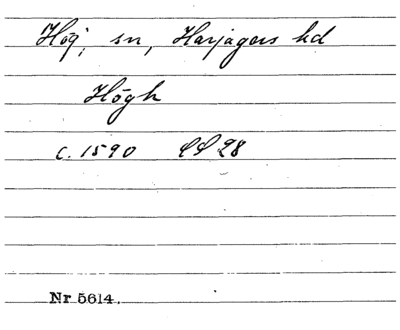 Hög, sn, Harjagers hd
Högh
c. 1590 LL 28
Nr 5614.